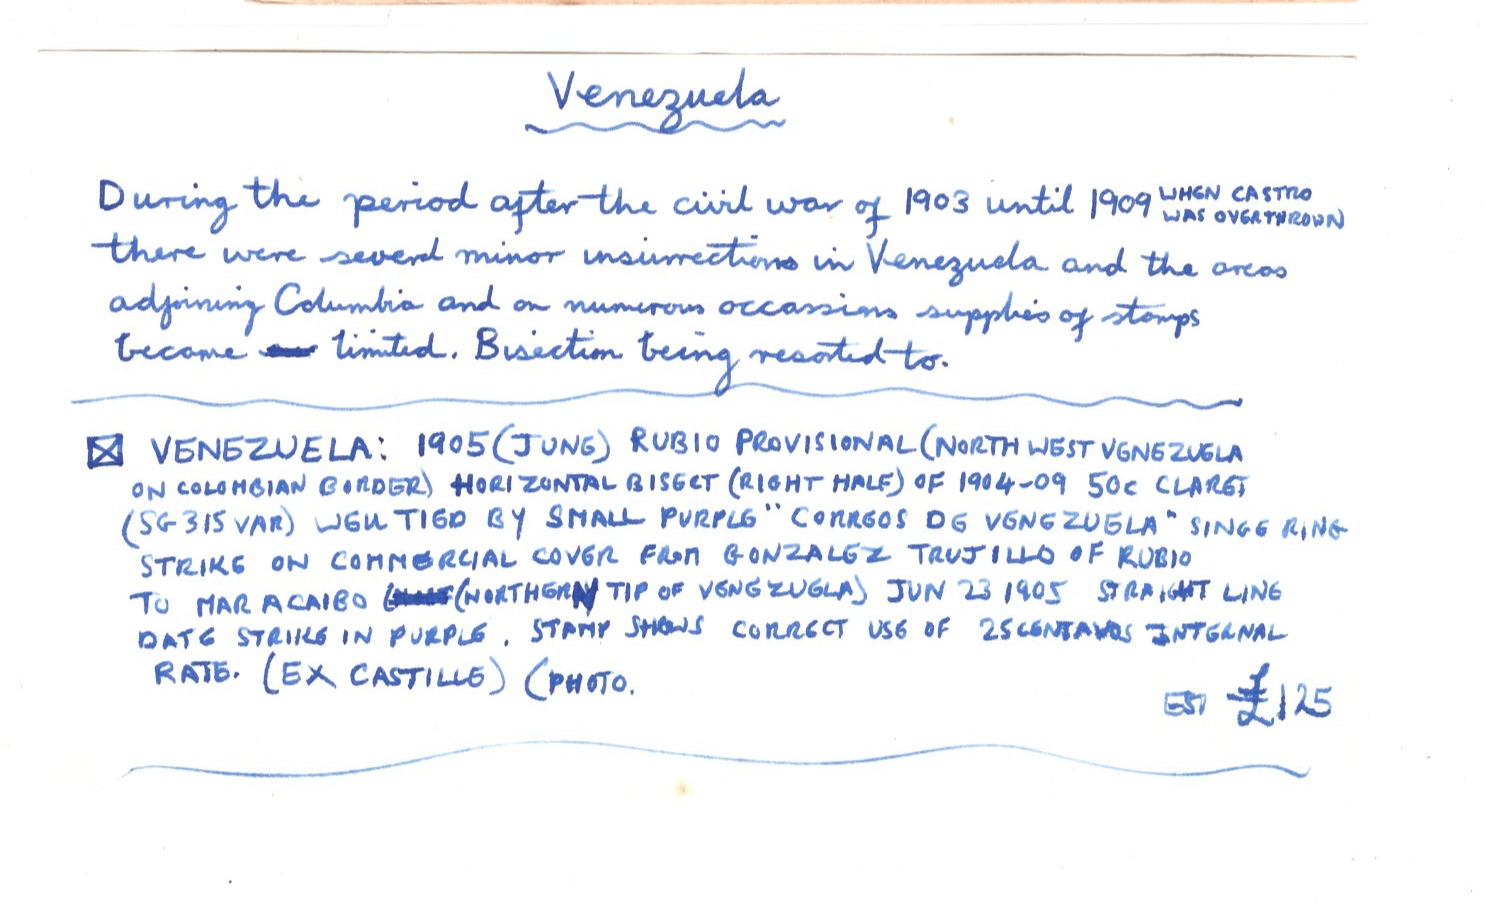 Venezuela
During the period after the civil war of 1903 until 1909 WHEN CASTRO WAS OVERTHROWN
there were several minor insurrections in Venezuela and the areas
adjoining Columbia and on numerous occassions supplies of stamps
became limited. Bisection being resorted to.
VENEZUELA: 1905 (JUNE) RUBIO PROVISIONAL (NORTH WEST VENEZUELA
ON COLOMBIAN BORDER) HORIZONTAL BISECT (RIGHT HALF) OF 1904-09 50c CLARET
(SG 315 VAR) WELL TIED BY SMALL PURPLE "CORREOS DE VENEZUELA" SINGE RING
STRIKE ON COMMERCIAL COVER FROM GONZALEZ TRUJILLO OF RUBIO
TO MARACAIBO (NORTHERN TIP OF VENEZUELA) JUN 23 1905 STRAIGHT LINE
DATE STRIKE IN PURPLE. STAMP SHOWS CORRECT USE OF 25 CENTAVOS INTERNAL
RATE. (EX CASTILLE) (PHOTO.
EST £125